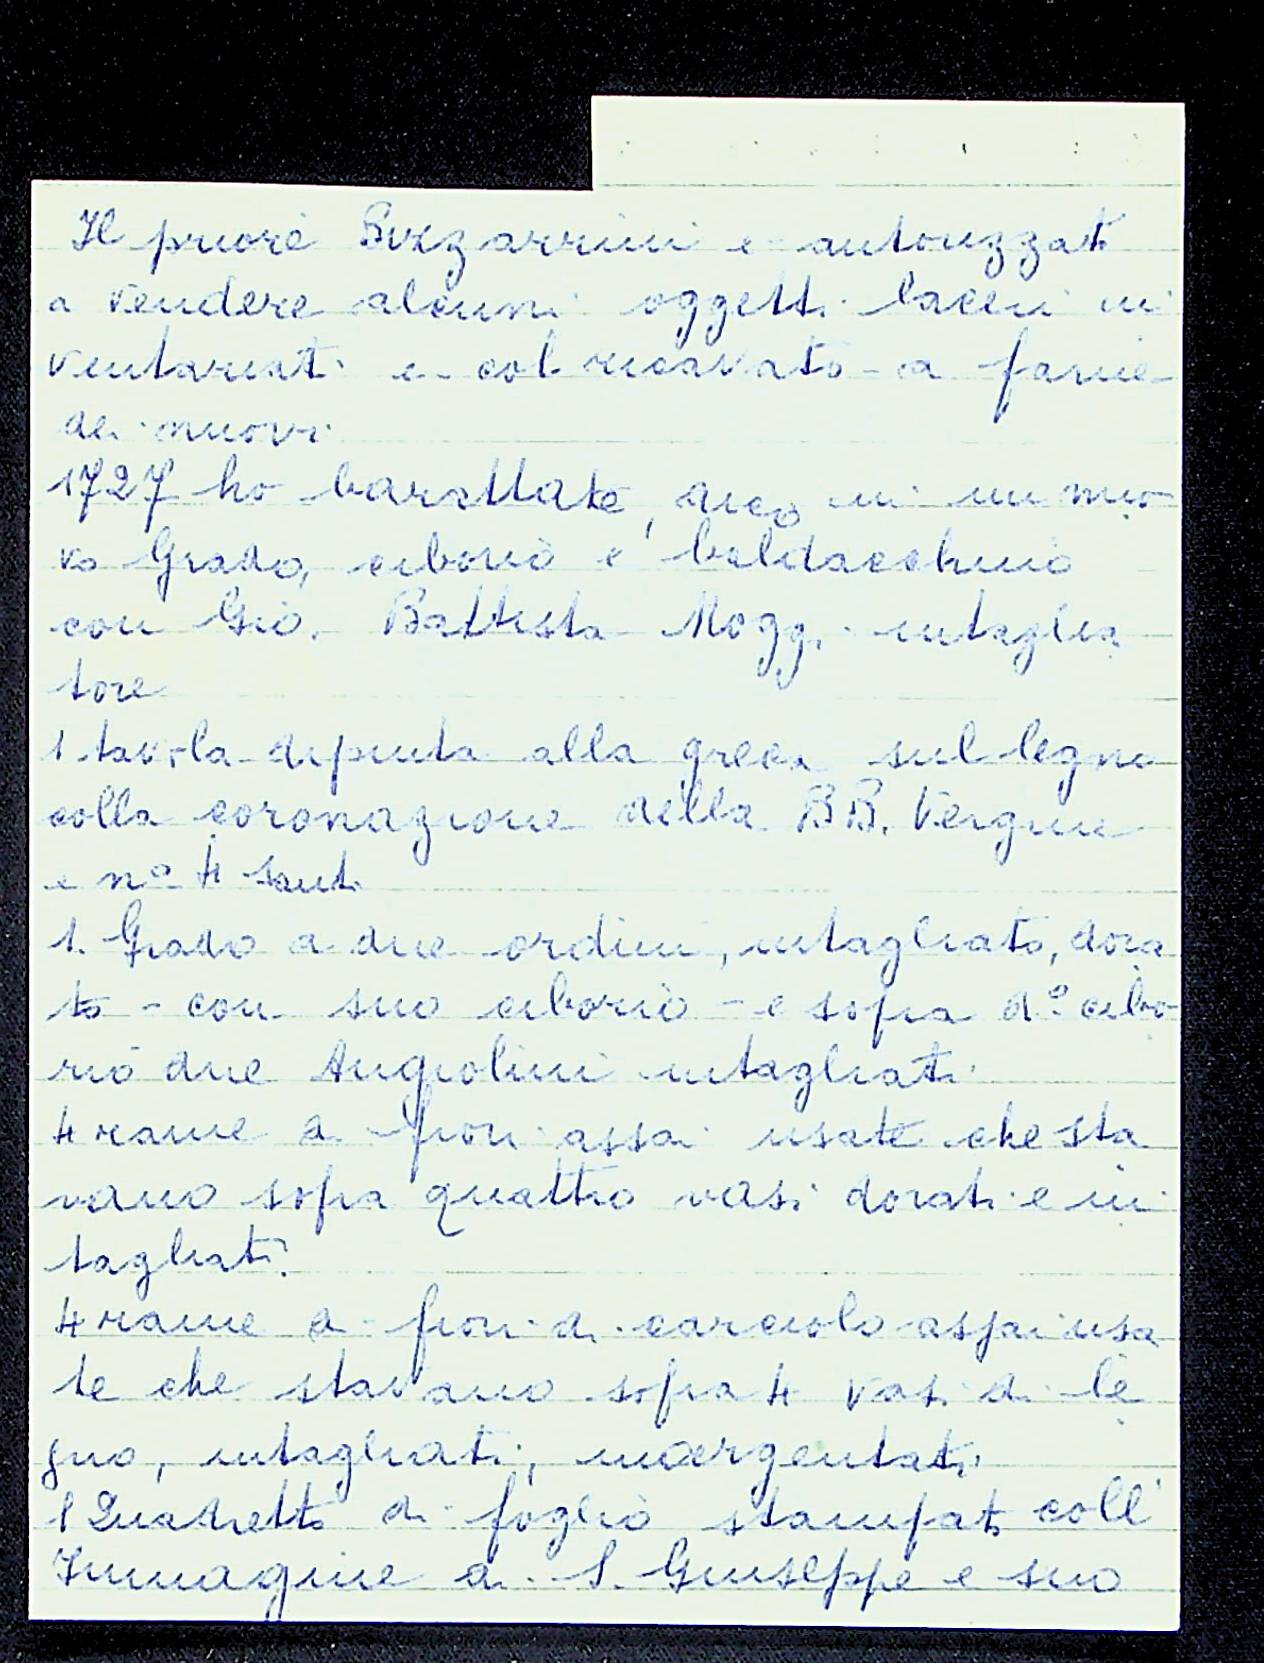 Il priore Bizzarrini e autorizzato
a vendere alcuni oggetti laceri in
ventariati e col ricavato a farne
dei nuovi.
1727 ho barattate, dico in un nuo
vo Grado, ciborio e baldacchino
con Gio. Battista Moggi intaglia
tore
1 tavola dipinta alla greca sul legno
colla coronazione della BB. Vergine
e n° 4 santi
1. Grado a due ordini, intagliato, dora
to - con suo ciborio - e sopra d° cibo
rio due Angiolini intagliati.
4 rame a fiori assai usate che sta
vano sopra quattro vasi dorati e in
tagliati.
4 rame a fiori di carciofo assai usa
te che stavano sopra 4 vasi di le
gno, intagliati, inargentati.
1 Quadretto di foglio stampato coll'
Immagine di S. Giuseppe e suo